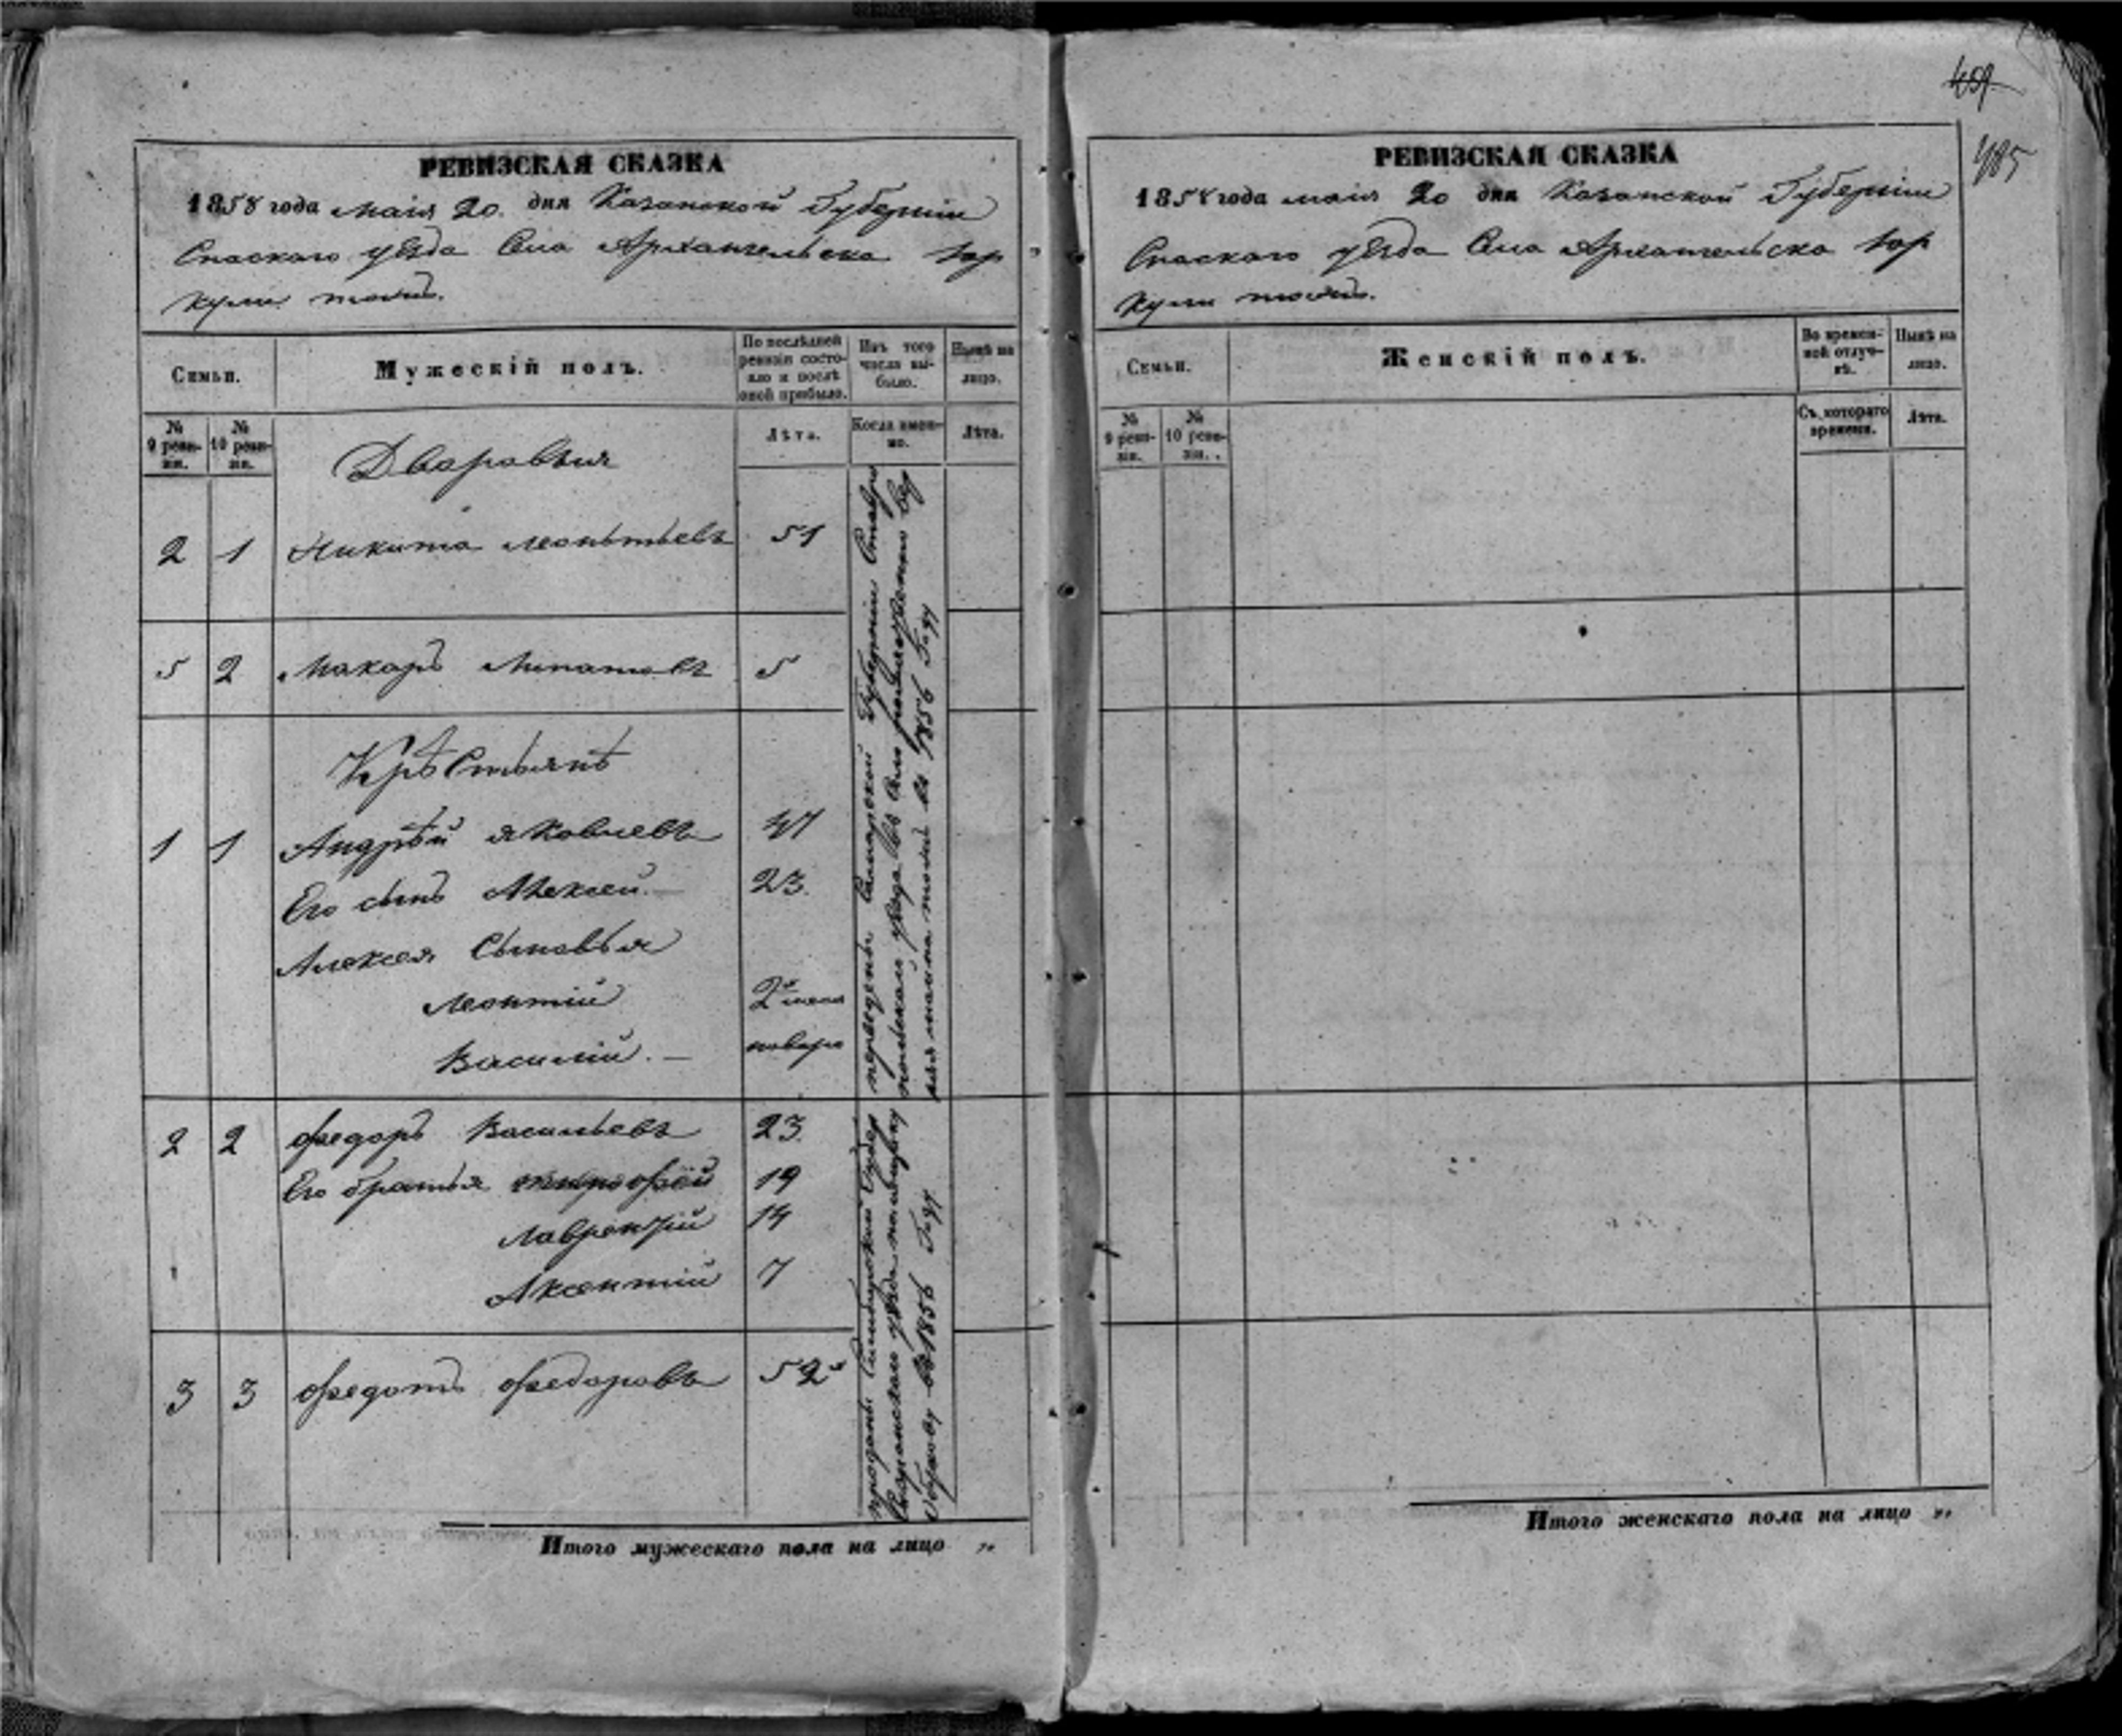 РЕВИЗСКАЯ СКАЗКА
1858 года маія 20. дня Казанской Губерніи
Спаскаго уѣзда Села Архангельска
кули тожъ.
Семьи.
Мужескій полъ.
По послѣдней ревизіи состояло и послѣ оной прибыло.
Изъ того числа выбыло.
Нынѣ на лицо.
№ 9 ревизіи.
№ 10 ревизіи.
Лѣта.
Когда именно.
Лѣта.
Дворовыя
2 1 Никита Леонтьевъ 51
5 2 Макаръ Липатовъ 5
Крѣстьянѣ
1 1 Андрѣй Яковлевъ 47
Его сынъ Алексей. 23.
Алексея Сыновья
Леонтій
Василій.
2 2 Федоръ Васильевъ 23.
Его братья 19
Лаврентій 14
Аксентій 7
3 3 Федотъ Федоровъ 52
переѣдены Самарской Губерніи Ставро
польскаго уѣзда въ Село
тожъ въ 1856 Году
проданы Симбирской Губер
уѣзда помѣщику
въ 1856 Году
Итого мужескаго пола на лицо „
459
485
РЕВИЗСКАЯ СКАЗКА
1858 года маія 20 дня Казанской Губерніи
Спаскаго уѣзда Села Архангельска
кули тожъ.
Семьи.
Женскій полъ.
Во временной отлучкѣ.
Нынѣ на лицо.
№ 9 ревизіи.
№ 10 ревизіи.
Съ котораго времени.
Лѣта.
Итого женскаго пола на лицо „